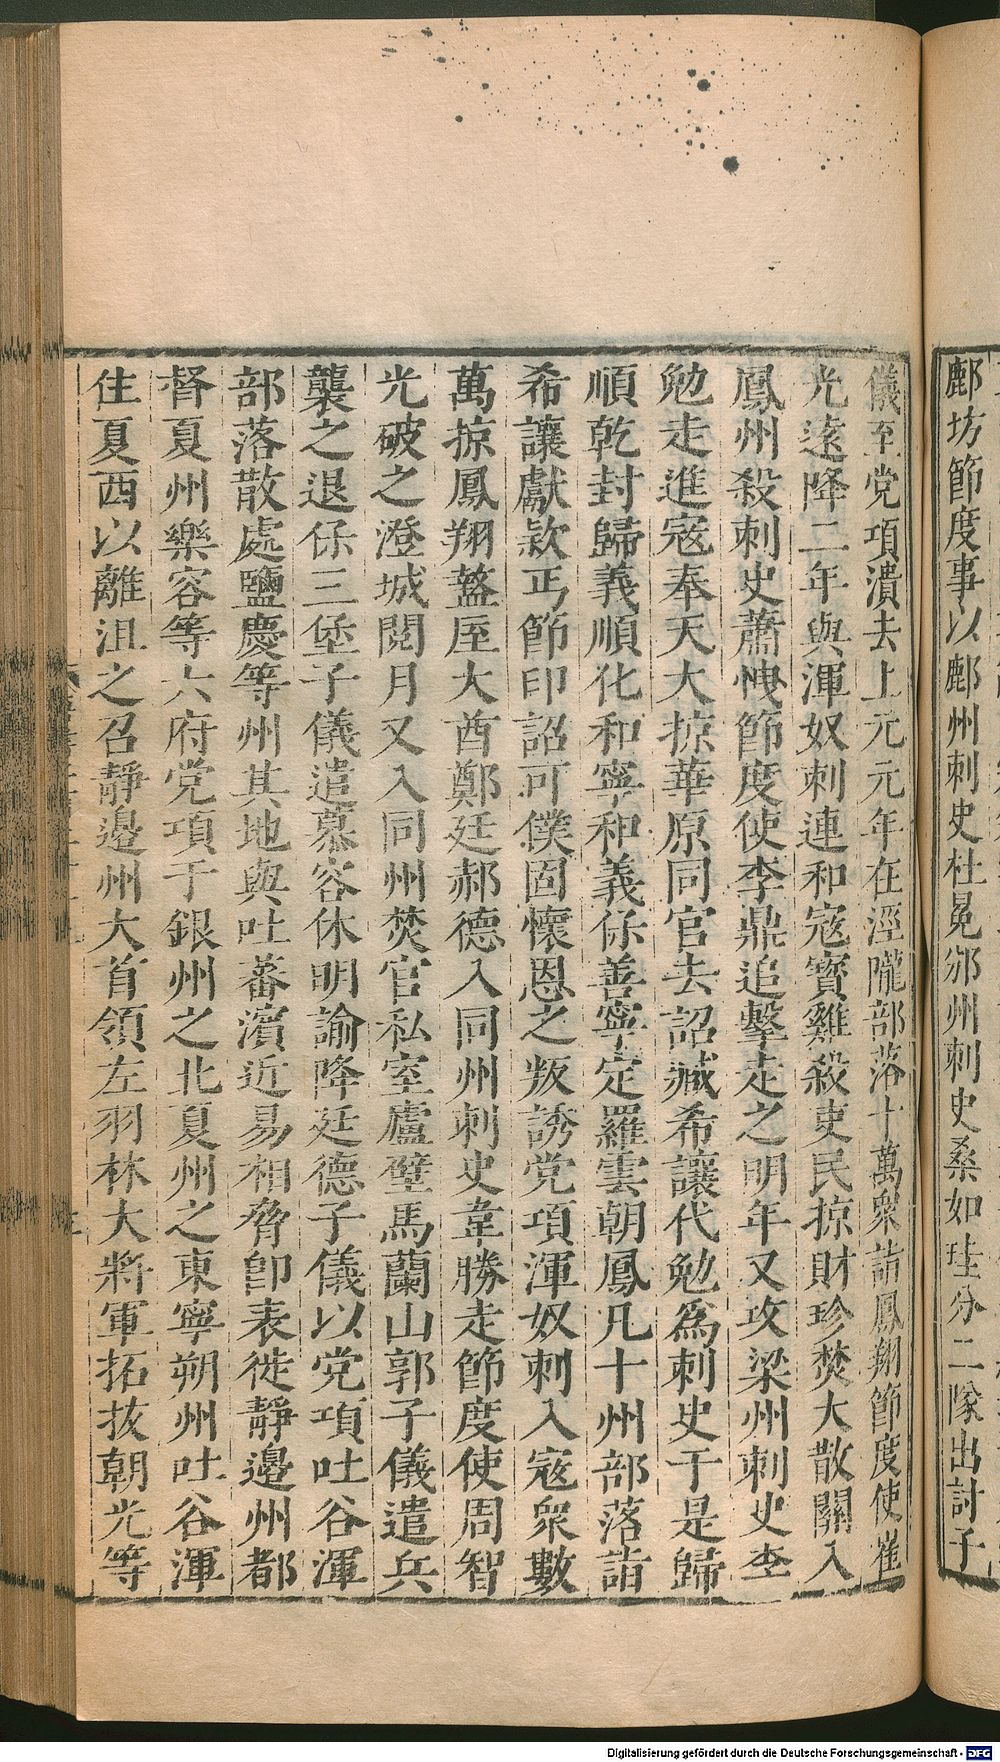 鄜坊節度事以鄜州刺史杜冕邠州刺史桑如珪分二隊出討子
儀至党項潰去上元元年在涇隴部落十萬衆詣鳳翔節度使崔
光遠降二年與渾奴刺連和寇寳雞殺吏民掠財珍焚大散關入
鳳州殺刺史蕭㥠節度使李鼎追擊走之明年又攻梁州刺史李
勉走進寇奉天大掠華原同官去詔臧希讓代勉爲刺史于是歸
順乾封歸義順化和寧和義保善寧定羅雲朝鳳凡十州部落詣
希讓獻欵丐節印詔可僕固懷恩之叛誘党項渾奴刺入寇衆數
萬掠鳳翔盩厔大酋鄭廷郝德入同州刺史韋勝走節度使周智
光破之澄城閱月又入同州焚官私室廬壁馬蘭山郭子儀遣兵
襲之退保三堡子儀遣慕容休明諭降廷德子儀以党項吐谷渾
部落散處鹽慶等州其地與吐蕃濱近易相脅卽表徙靜邊州都
督夏州樂容等六府党項于銀州之北夏州之東寧朔州吐谷渾
住夏西以離沮之召靜邊州大首領左羽林大將軍拓拔朝光等
Digitalisierung gefördert durch die Deutsche Forschungsgemeinschaft - DFG